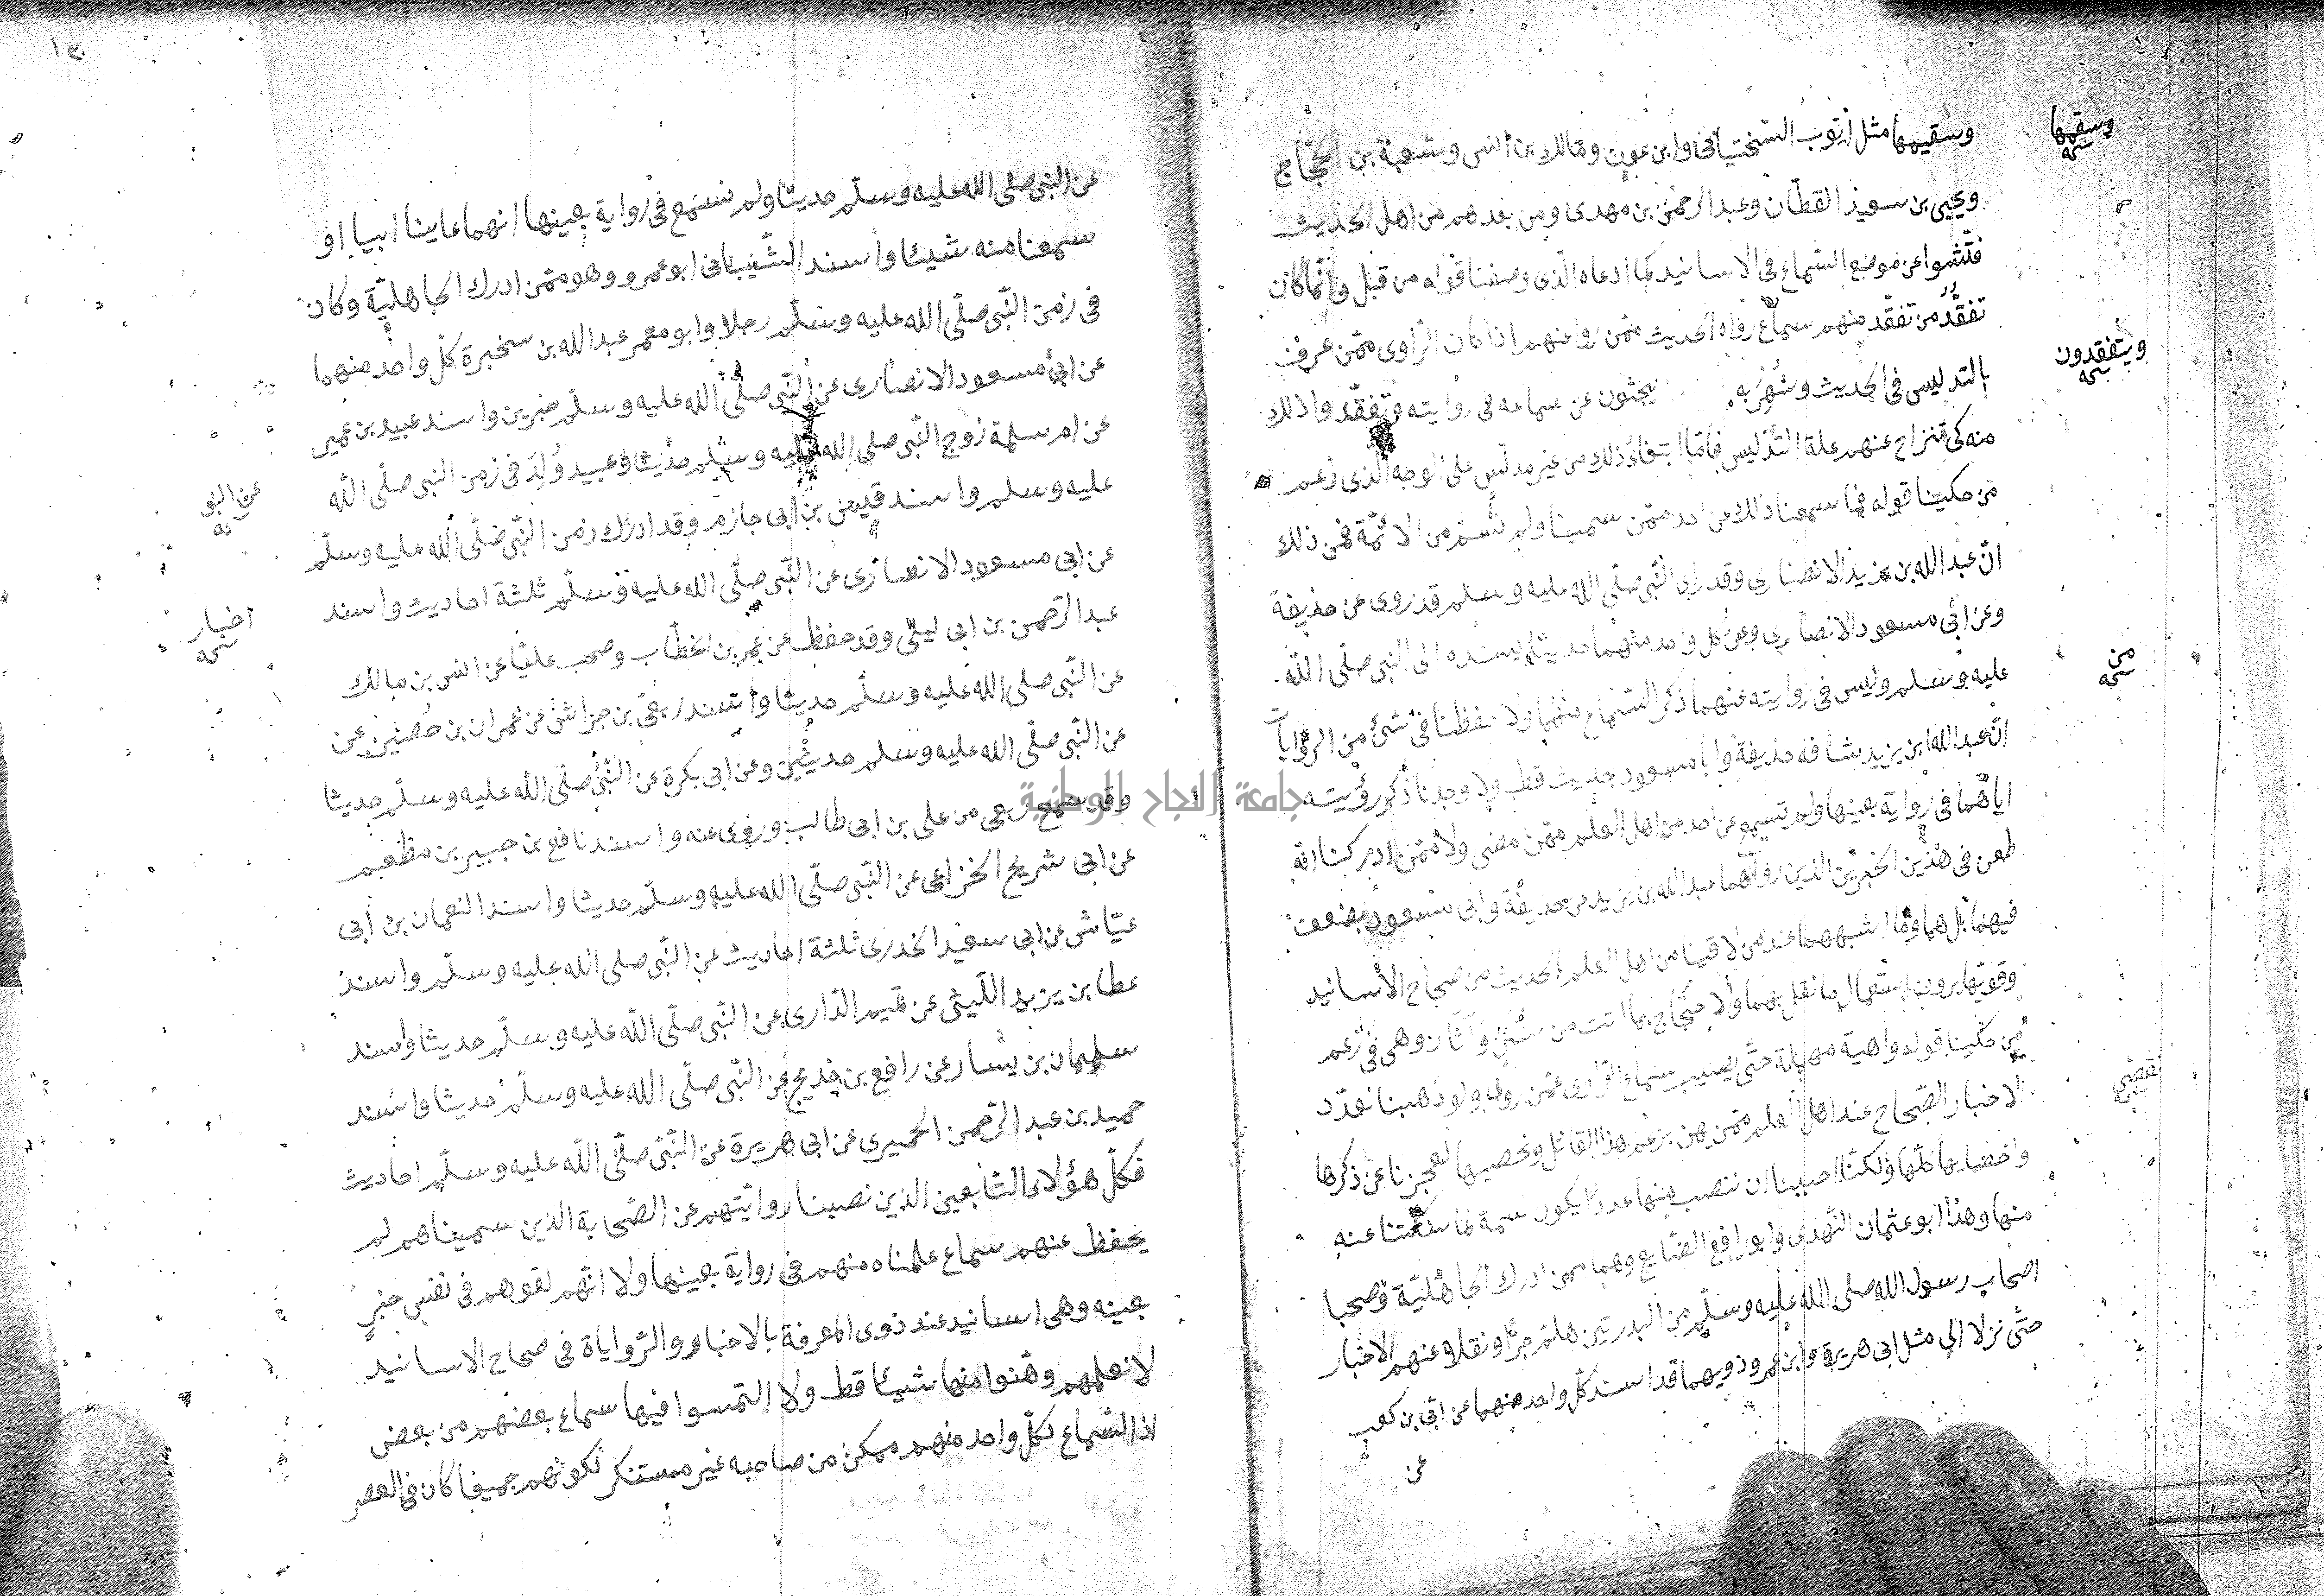 وسقيمها مثل ايوب السختياني وابن عون ومالك بن انس وشعبة بن الحجاج
وسقمها نسخه
ويحيى بن سعيد القطان وعبد الرحمن بن مهدى ومن بعدهم من اهل الحديث
فتشوا عن موضع السماع فى الاسانيد كما ادعاه الذى وصفنا قوله من قبل وانما كان
تفقد من تفقد منهم سماع رواه الحديث ممن روا عنهم اذا كان الراوى ممن عرف
بالتدليس فى الحديث وشهر به يبحثون عن سماعه فى روايته وتفقدوا ذلك
ويتفقدون نسخه
منه كى تنزاح عنهم علة التدليس فاما ابتغاء ذلك من غير مدلس على الوجه الذى زعم
من حكينا قوله فما سمعنا ذلك عن احد ممن سمينا ولم نسم من الائمة فمن ذلك
ان عبد الله بن يزيد الانصارى وقد راى النبى صلى الله عليه وسلم قد روى عن حذيفة
وعن ابى مسعود الانصارى وعن كل واحد منهما حديثا يسنده الى النبى صلى الله
عليه وسلم وليس فى روايته عنهما ذكر السماع منهما ولا حفظنا فى شئ من الروايات
من نسخه
ان عبد الله ابن يزيد شافه حذيفة وابا مسعود بحديث قط ولا وجدنا ذكر رؤيته
اياهما فى رواية بعينها ولم نسمع عن احد من اهل العلم ممن مضى ولا ممن ادركنا انه
طعن فى هذين الخبرين الذين رواهما عبد الله بن يزيد عن حذيفة وابى مسعود بضعف
فيهما بل هما وما اشبههما عند من لاقينا من اهل العلم الحديث من صحاح الاسانيد
وقويها يرون استعمال ما نقل بهما والاحتجاج بما اتت من سنن وآثار وهى فى زعم
من حكينا قوله واهية مهملة حتى يصيب سماع الراوى عمن روى ولو ذهبنا نعدد
الاخبار الصحاح عند اهل العلم ممن يهن بزعم هذا القائل ونحصيها لعجزنا عن ذكرها
واحصايها كلها ولكنا احببنا ان ننصب منها عددا يكون سمة لما سكتنا عنه
منها وهذا ابو عثمان النهدى وابو رافع الصايغ وهما ممن ادرك الجاهلية وصحبا
اصحاب رسول الله صلى الله عليه وسلم من البدريين هلم جرا ونقلا عنهم الاخبار
حتى نزلا الى مثل ابى هريرة وابن عمر وذويهما قد اسند كل واحد منهما عن ابى بن كعب
عن
جامعة النجاح الوطنية
١٣
عن النبى صلى الله عليه وسلم حديثا ولم نسمع فى رواية بعينها انهما عاينا ابيا او
سمعنا منه شيئا واسند الشيبانى ابو عمرو وهو ممن ادرك الجاهلية وكان
فى زمن النبى صلى الله عليه وسلم رجلا وابو معمر عبد الله بن سخبرة كل واحد منهما
عن ابى مسعود الانصارى عن النبى صلى الله عليه وسلم خبرين واسند عبيد بن عمير
عن ام سلمة زوج النبى صلى الله عليه وسلم حديثا وعبيد ولد فى زمن النبى صلى الله
عليه وسلم واسند قيس بن ابى حازم وقد ادرك زمن النبى صلى الله عليه وسلم
عن ابى مسعود الانصارى عن النبى صلى الله عليه وسلم ثلثة احاديث واسند
اخبار نسخه
عبد الرحمن بن ابى ليلى وقد حفظ عن عمر بن الخطاب وصحب عليا عن انس بن مالك
عن النبى صلى الله عليه وسلم حديثا واسند ربعى بن حراش عن عمران بن حصين عن
عن النبى صلى الله عليه وسلم حديثين وعن ابى بكرة عن النبى صلى الله عليه وسلم حديثا
وقد سمع ربعى من على بن ابى طالب وروى عنه واسند نافع بن جبير بن مطعم
عن ابى شريح الخزاعى عن النبى صلى الله عليه وسلم حديثا واسند النعمان بن ابى
عياش عن ابى سعيد الخدرى ثلثة احاديث عن النبى صلى الله عليه وسلم واسند
عطا بن يزيد الليثى عن تميم الدارى عن النبى صلى الله عليه وسلم حديثا واسند
سليمان بن يسار عن رافع بن خديج عن النبى صلى الله عليه وسلم حديثا واسند
حميد بن عبد الرحمن الحميري عن ابى هريرة عن النبى صلى الله عليه وسلم احاديث
فكل هؤلاء التابعين الذين نصبنا روايتهم عن الصحابة الذين سميناهم لم
يحفظ عنهم سماع علمناه منهم فى رواية بعينها ولا انهم لقوهم فى نفس خبر
بعينه وهى اسانيد عند ذوى المعرفة بالاخبار والرواياة فى صحاح الاسانيد
لا نعلمهم وهنوا منها شيئا قط ولا التمسوا فيها سماع بعضهم من بعض
اذ السماع لكل واحد منهم ممكن من صاحبه غير مستنكر لكونهم جميعا كان فى العصر